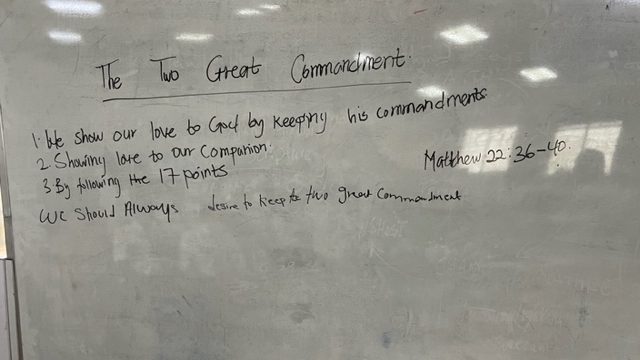 The Two Great Commandment.
1. We show our love to God by Keeping his commandments
2. Showing love to our Companion.
3. By following the 17 points
Matthew 22:36-40.
We Should Always desire to keep the two great Commandment